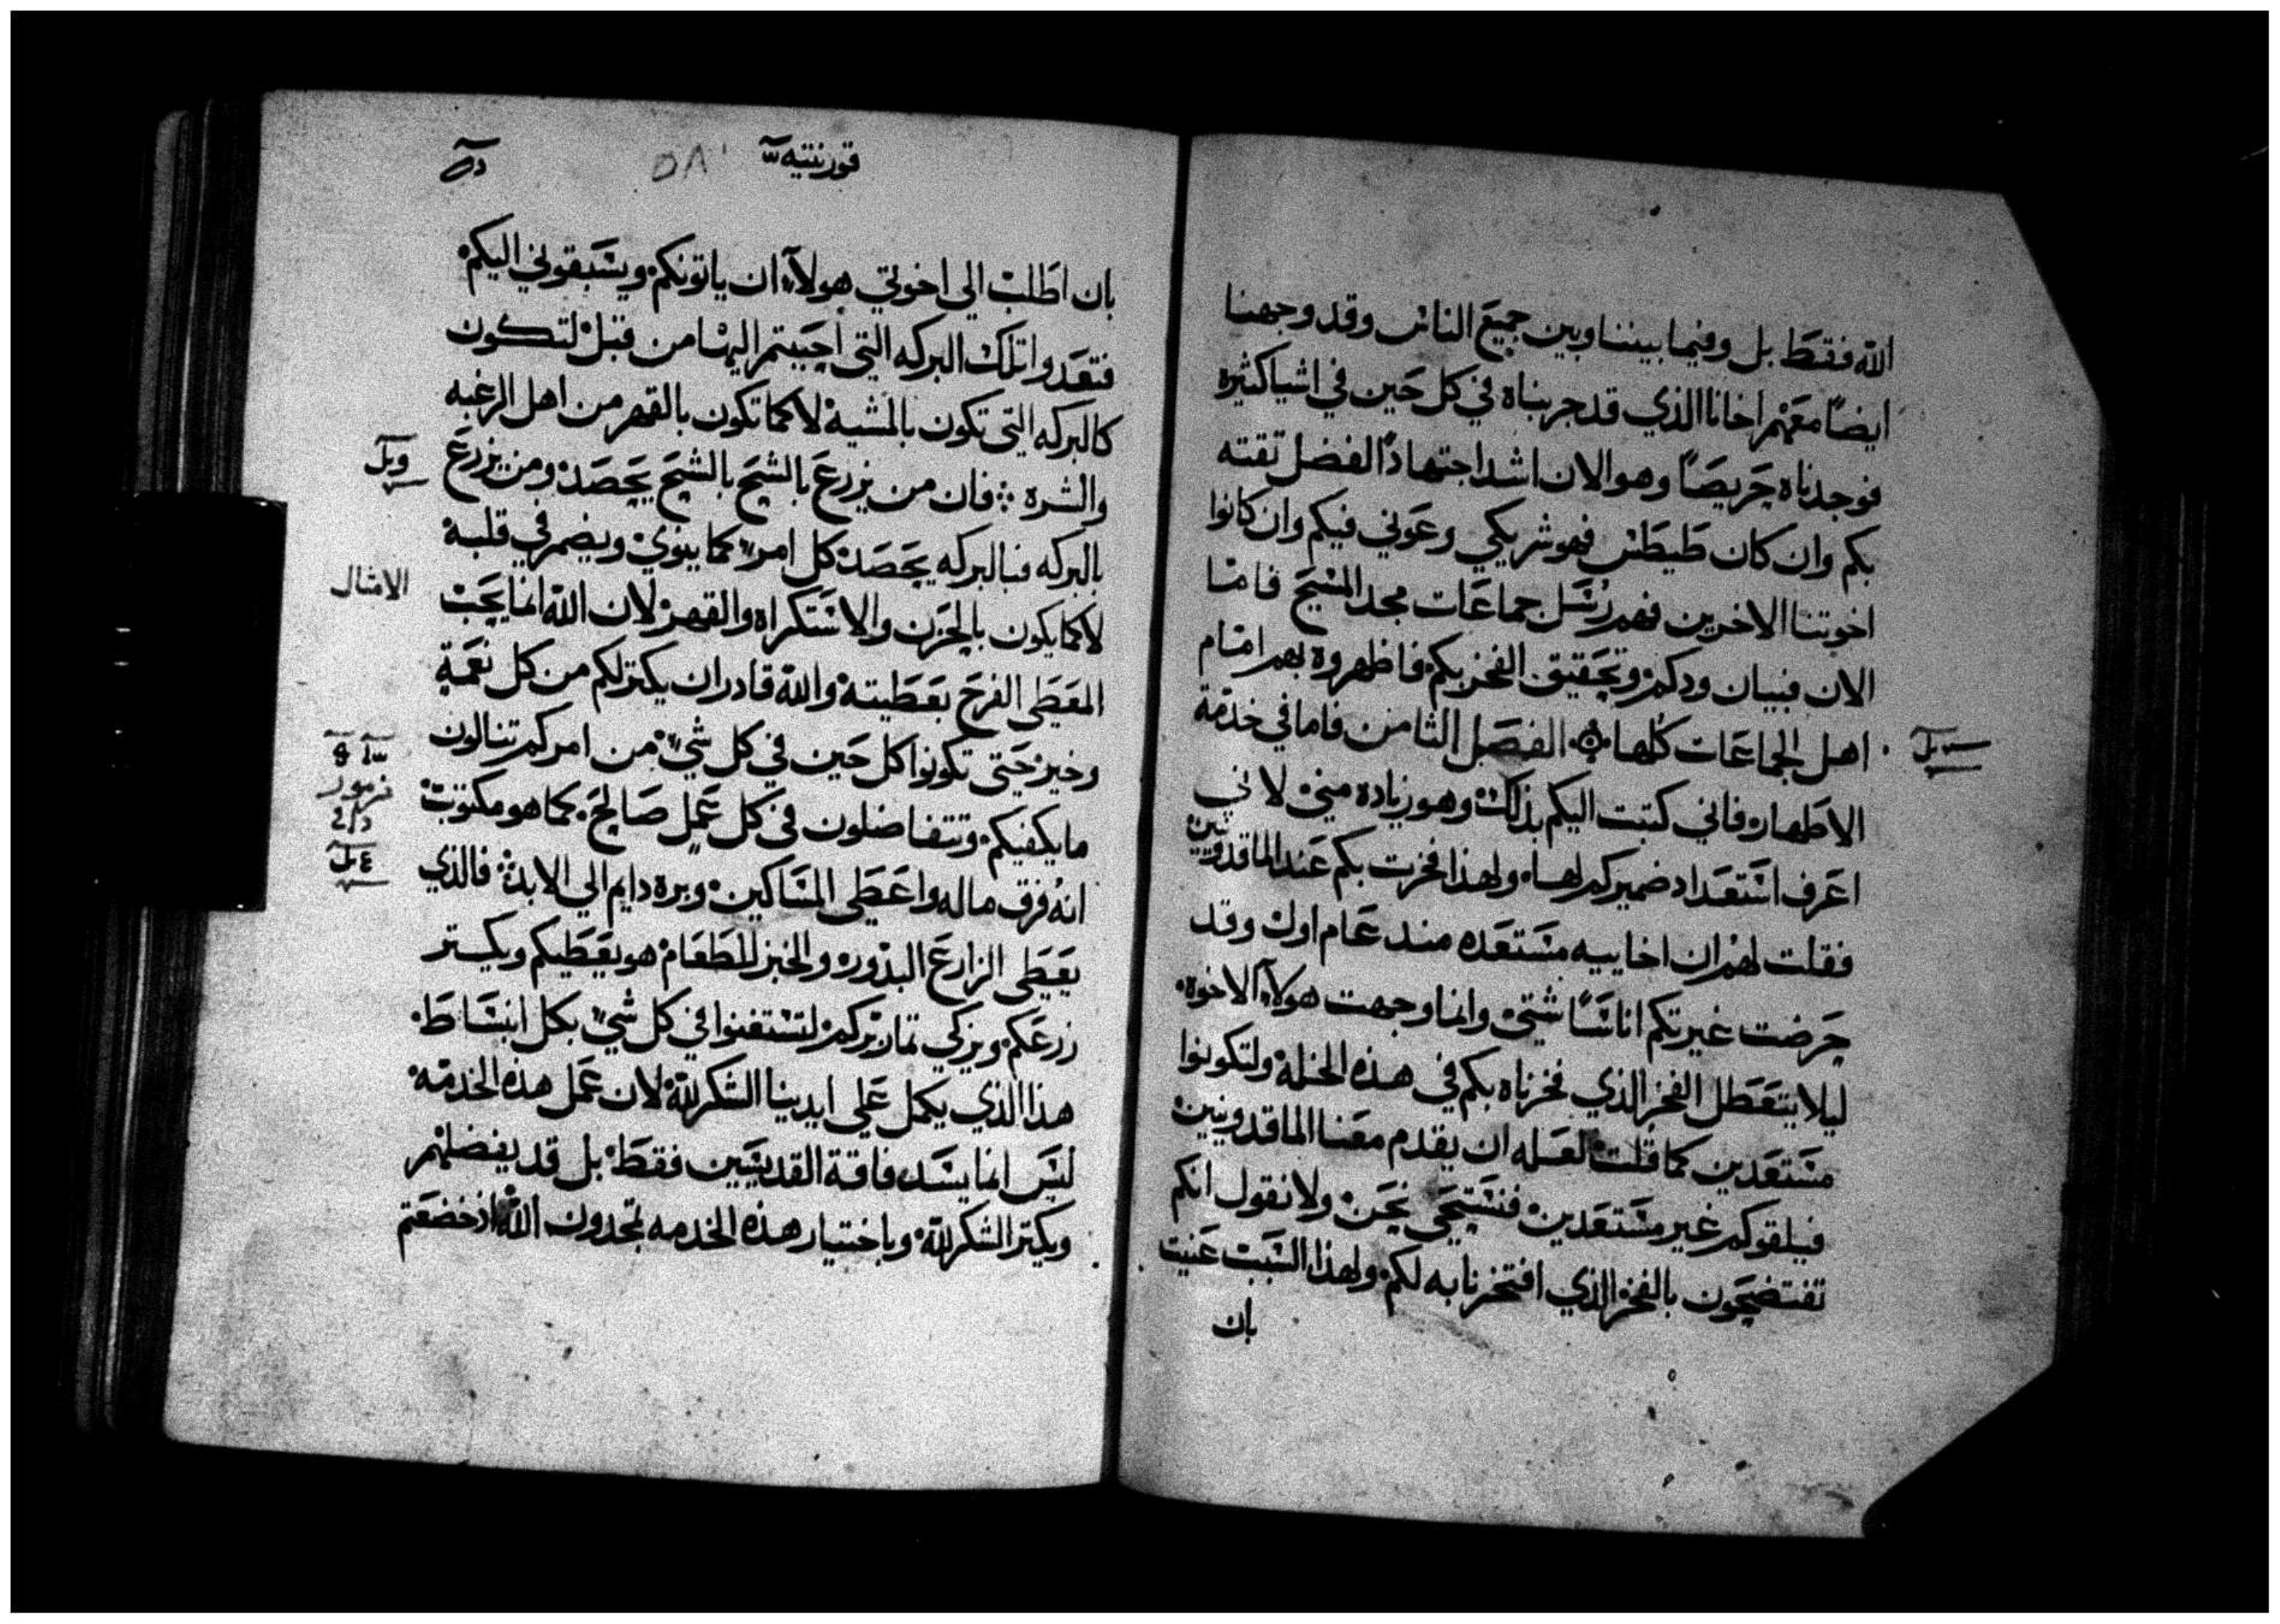 الله فقط بل وفيما بيننا وبين جميع الناس وقد وجهنا
ايضًا معهم اخانا الذي قد جربناه في كل حين في اشيا كثيره
فوجدناه حريصًا وهو الان اشد اجتهادًا لفضل ثقته
بكم وان كان طيطس فهو شريكي وعوني فيكم وان كانوا
اخوتنا الاخرين فهم رُسل جماعات مجد المسيح فامّا
الان فبيان ودكم وتحقيق الفخر بكم فاظهروه بهم امام
اهل الجماعات كلها الفصل الثامن فاما في خدمة
الاطهار فاني كتبت اليكم بذلك وهو زياده مني لاني
اعرف استعداد ضميركم لها ولهذا فخرت بكم عند الماقدونيين
فقلت لهم ان اخاييه مستعده مند عام اول وقد
حرضت غيرتكم اناسًا شتي وانما وجهت هولآء الاخوه
ليلا يتعطل الفخر الذي فخرناه بكم في هذه الخله ولتكونوا
مستعدين كما قلت لعله ان يقدم معنا الماقدونيين
فيلقوكم غير مستعدين فنستحي نحن ولا نقول انكم
تفتضحون بالفخر الذي افتخرنا به لكم ولهذا السبب عنيت
بان
قورنتيه
٥٨
بان اطلب الي اخوتي هولآء ان ياتونكم ويسبقوني اليكم
فتعدوا تلك البركه التي اجبتم اليها من قبل لتكون
كالبركه التي تكون بالمشية لا كما تكون بالقهر من اهل الرغبه
والشره فان من يزرع بالشح بالشح يحصد ومن يزرع
بالبركه فبالبركه يحصد كل امرء كما ينوي ويضمر في قلبه
لا كما يكون بالحزن والاستكراه والقهر لان الله انما يحب
الامثال
المعطي الفرح بعطيته والله قادر ان يكثر لكم من كل نعمة
وخير حتي تكونوا كل حين في كل شيء من امركم تنالون
ما يكفيكم وتتفاضلون في كل عمل صالح كما هو مكتوب
مزمور
انه فرق ماله واعطي المساكين وبره دايم الي الابد فالذي
يعطي الزارع البذوره والخبز للطعام هو يعطيكم ويكثر
زرعكم ويزكي ثمار بركم لتستغنوا في كل شيء بكل انبساط
هذا الذي يكمل علي ايدينا الشكر لله لان عمل هذه الخدمه
ليس انما يسد فاقة القديسين فقط بل قد يفضلهم
ويكثر الشكر لله وباختيار هذه الخدمه تمجدون الله اذ خضعتم